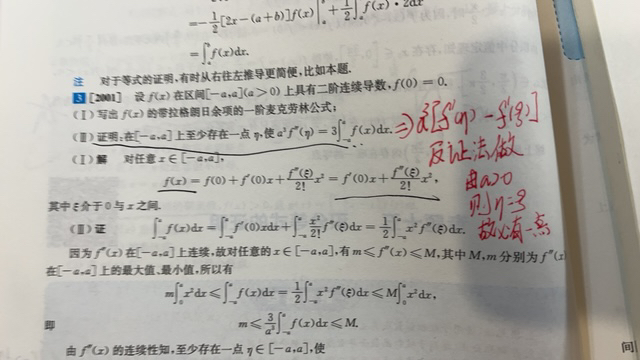 =-1/2[2x-(a+b)]f(x)|+1/2∫f(x)·2dx
=∫_a^b f(x)dx.
注 对于等式的证明,有时从右往左推导更简便,比如本题.
3 [2001] 设 f(x)在区间[-a,a](a>0)上具有二阶连续导数,f(0)=0.
(Ⅰ)写出 f(x)的带拉格朗日余项的一阶麦克劳林公式;
(Ⅱ)证明:在[-a,a]上至少存在一点 η,使 a³f″(η)=3∫_{-a}^{a} f(x)dx.
(Ⅰ)解 对任意 x∈[-a,a],
f(x)=f(0)+f′(0)x+f″(ξ)/2! x²=f′(0)x+f″(ξ)/2! x²,
其中 ξ介于 0 与 x 之间.
(Ⅱ)证 ∫_{-a}^{a} f(x)dx=∫_{-a}^{a} f′(0)xdx+∫_{-a}^{a} x²/2! f″(ξ)dx=1/2∫_{-a}^{a} x²f″(ξ)dx.
因为 f″(x)在[-a,a]上连续,故对任意的 x∈[-a,a],有 m≤f″(x)≤M,其中 M,m 分别为 f″(x
在[-a,a]上的最大值、最小值,所以有
m∫_0^a x²dx≤∫_{-a}^{a} f(x)dx=1/2∫_{-a}^{a} x²f″(ξ)dx≤M∫_0^a x²dx,
即 m≤3/a³∫_{-a}^{a} f(x)dx≤M.
由 f″(x)的连续性知,至少存在一点 η∈[-a,a],使
反证法做
由a>0
则η=ξ
故必有一点
间